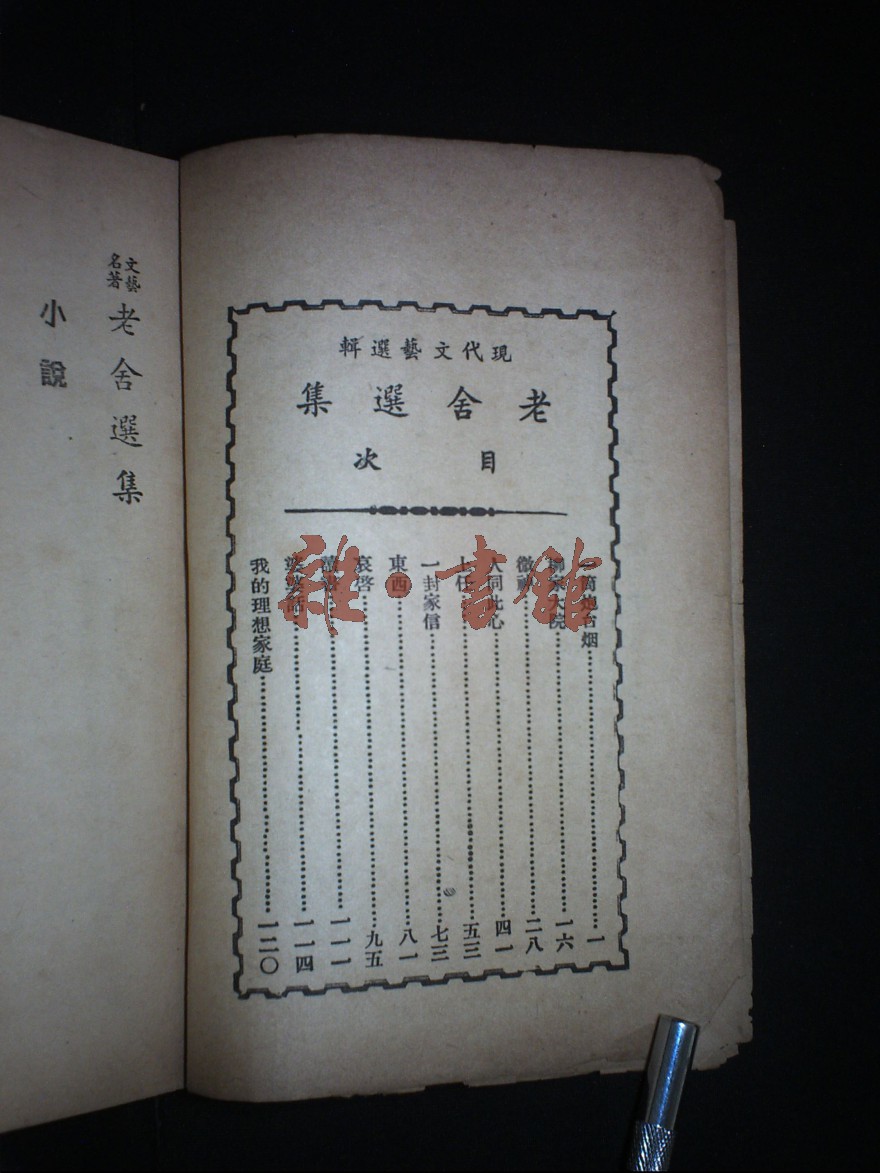 文藝
名著
老舍選集
小說
現代文藝選輯
老舍選集
目次
一筒炮台烟……一
柳家大院……一六
微神……二八
人同此心……四一
上任……五三
一封家信……七三
東西……八一
哀啓……九五
讀書……一一一
婆婆話……一一四
我的理想家庭……一二〇
雜·書館